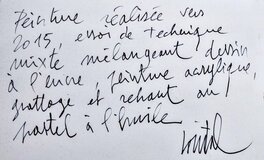 Peinture réalisée vers
2015, essor de technique
mixte mélangeant dessin
à l'encre, peinture acrylique,
grattage et rehaut au
pastel à l'huile